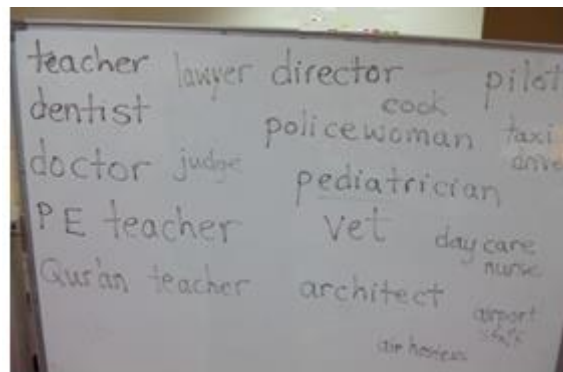 teacher lawyer director pilot
dentist cook
policewoman taxi
doctor judge pediatrician
PE teacher vet day care
nurse
Qur'an teacher architect airport
staff
air hostess